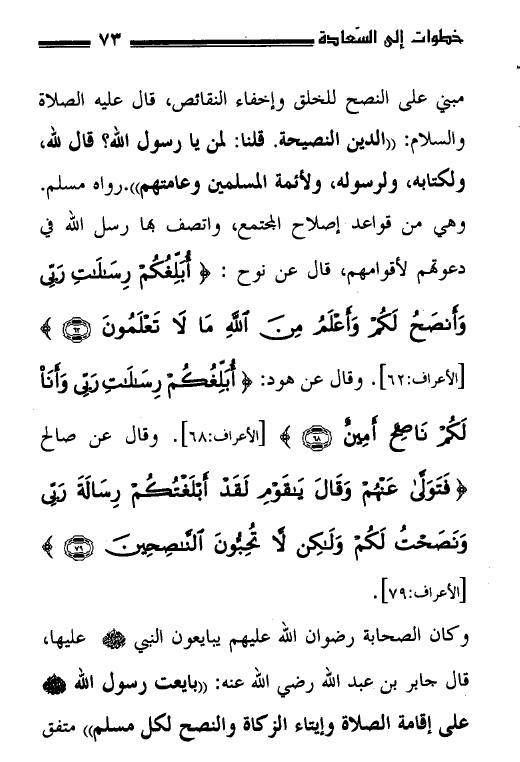 خطوات إلى السّعادة ٧٣
مبني على النصح للخلق وإخفاء النقائص، قال عليه الصلاة
والسلام: ((الدين النصيحة. قلنا: لمن يا رسول الله؟ قال لله،
ولكتابه، ولرسوله، ولأئمة المسلمين وعامتهم)).رواه مسلم.
وهي من قواعد إصلاح المجتمع، واتصف بها رسل الله في
دعوتهم لأقوامهم، قال عن نوح : ﴿ أُبَلِّغُكُمْ رِسَٰلَٰتِ رَبِّى
وَأَنصَحُ لَكُمْ وَأَعْلَمُ مِنَ ٱللَّهِ مَا لَا تَعْلَمُونَ ٦٢ ﴾
[الأعراف:٦٢]. وقال عن هود: ﴿ أُبَلِّغُكُمْ رِسَٰلَٰتِ رَبِّى وَأَنَا۠
لَكُمْ نَاصِحٌ أَمِينٌ ٦٨ ﴾ [الأعراف:٦٨]. وقال عن صالح
﴿ فَتَوَلَّىٰ عَنْهُمْ وَقَالَ يَٰقَوْمِ لَقَدْ أَبْلَغْتُكُمْ رِسَالَةَ رَبِّى
وَنَصَحْتُ لَكُمْ وَلَٰكِن لَّا تُحِبُّونَ ٱلنَّٰصِحِينَ ٧٩ ﴾
[الأعراف:٧٩].
وكان الصحابة رضوان الله عليهم يبايعون النبي ﷺ عليها،
قال جابر بن عبد الله رضي الله عنه: ((بايعت رسول الله ﷺ
على إقامة الصلاة وإيتاء الزكاة والنصح لكل مسلم)) متفق